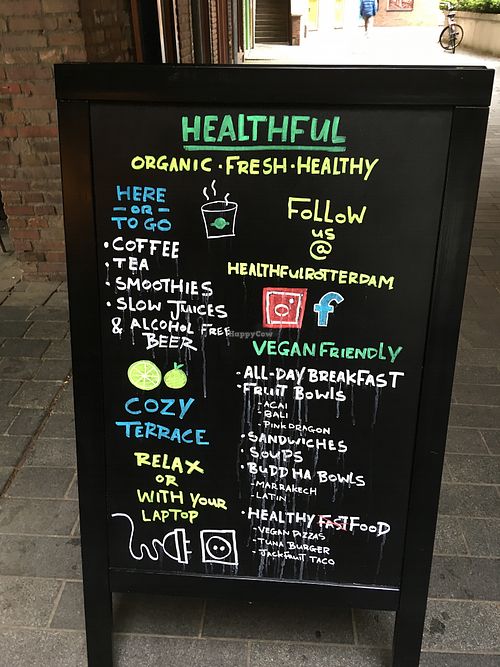 HEALTHFUL
ORGANIC · FRESH · HEALTHY
HERE
- OR -
TO GO
· COFFEE
· TEA
· SMOOTHIES
· SLOW JUICES
& ALCOHOL FREE
BEER
COZY
TERRACE
RELAX
OR
WITH YOUR
LAPTOP
FOLLOW
US
@
HEALTHFULROTTERDAM
f
VEGAN FRIENDLY
· ALL-DAY BREAKFAST
· FRUIT BOWLS
- ACAI
- BALI
- PINK DRAGON
· SANDWICHES
· SOUPS
· BUDDHA BOWLS
- MARRAKECH
- LATIN
· HEALTHY FAST FOOD
- VEGAN PIZZAS
- TUNA BURGER
- JACKFRUIT TACO
HappyCow